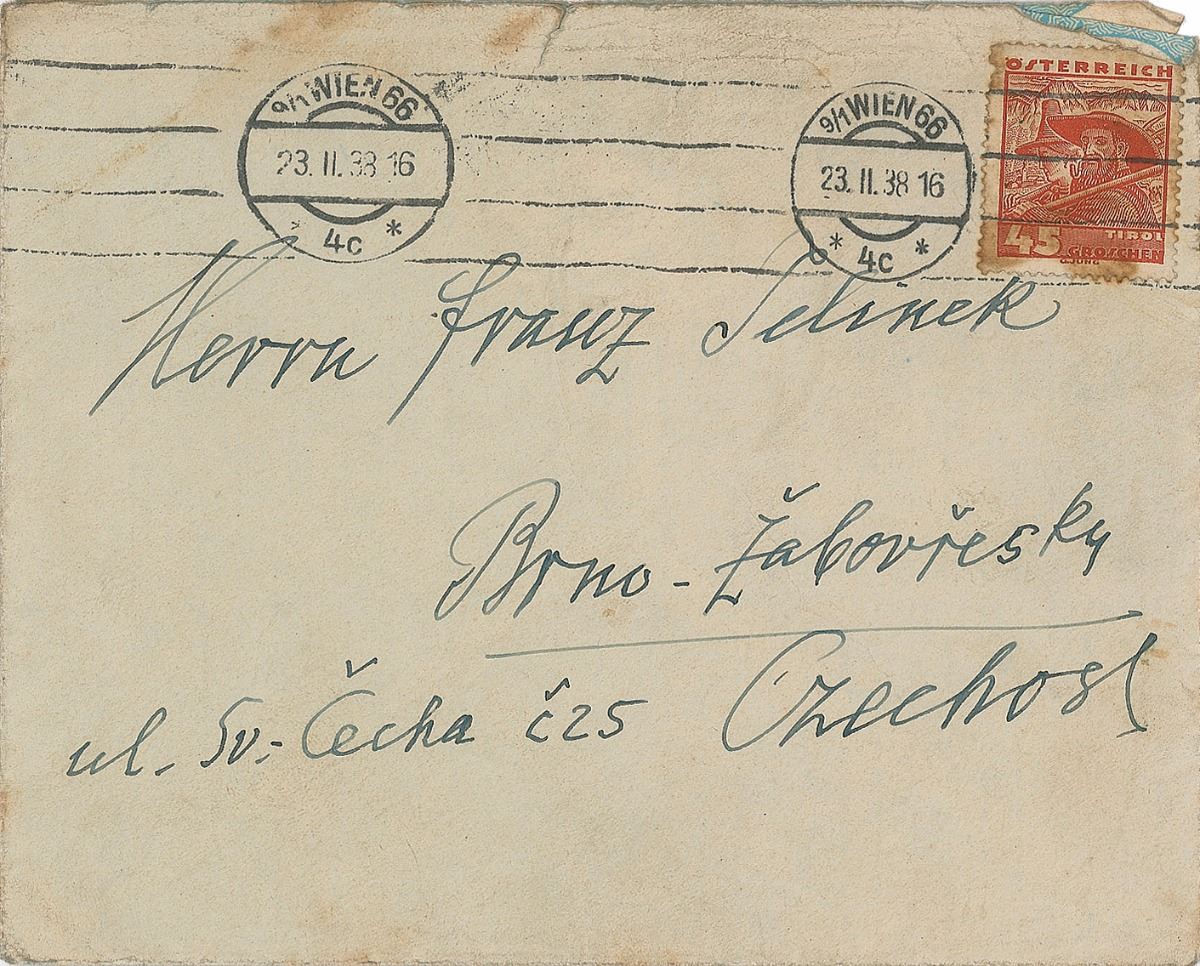 9/1 WIEN 66
23. II. 38 16
* 4c *
9/1 WIEN 66
23. II. 38 16
* 4c *
ÖSTERREICH
TIROL
45 GROSCHEN
G. JUNG
Herrn Franz Jelinek
Brno - Žabovřesky
ul. Sv. Čecha č 25
Czechosl